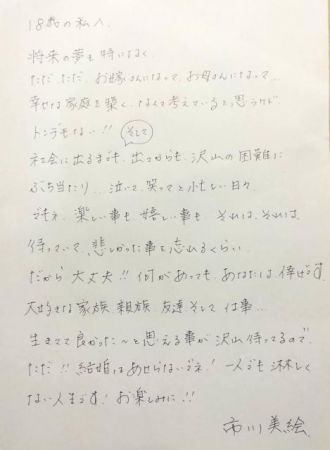 18歳の私へ
将来の夢も特になく、
ただ、ただ、お嫁さんになって、お母さんになって…
幸せな家庭を築く、なんて考えていると思うけど
トンデモない!!
そして
社会に出るまでも、出てからも、沢山の困難に
ぶち当たり…泣いて、笑ってと忙しい日々、
でもネ、楽しい事も嬉しい事も、それは、それは
待っていて、悲しかった事を忘れるくらい、
だから大丈夫!!何があってもあなたは倖せです
大好きな家族、親族、友達そして仕事…
生きてて良かった〜と思える事が沢山待ってるので、
ただ!!結婚はあせらないでネ!一人でも淋しく
ない人生です!お楽しみに!!
市川美絵